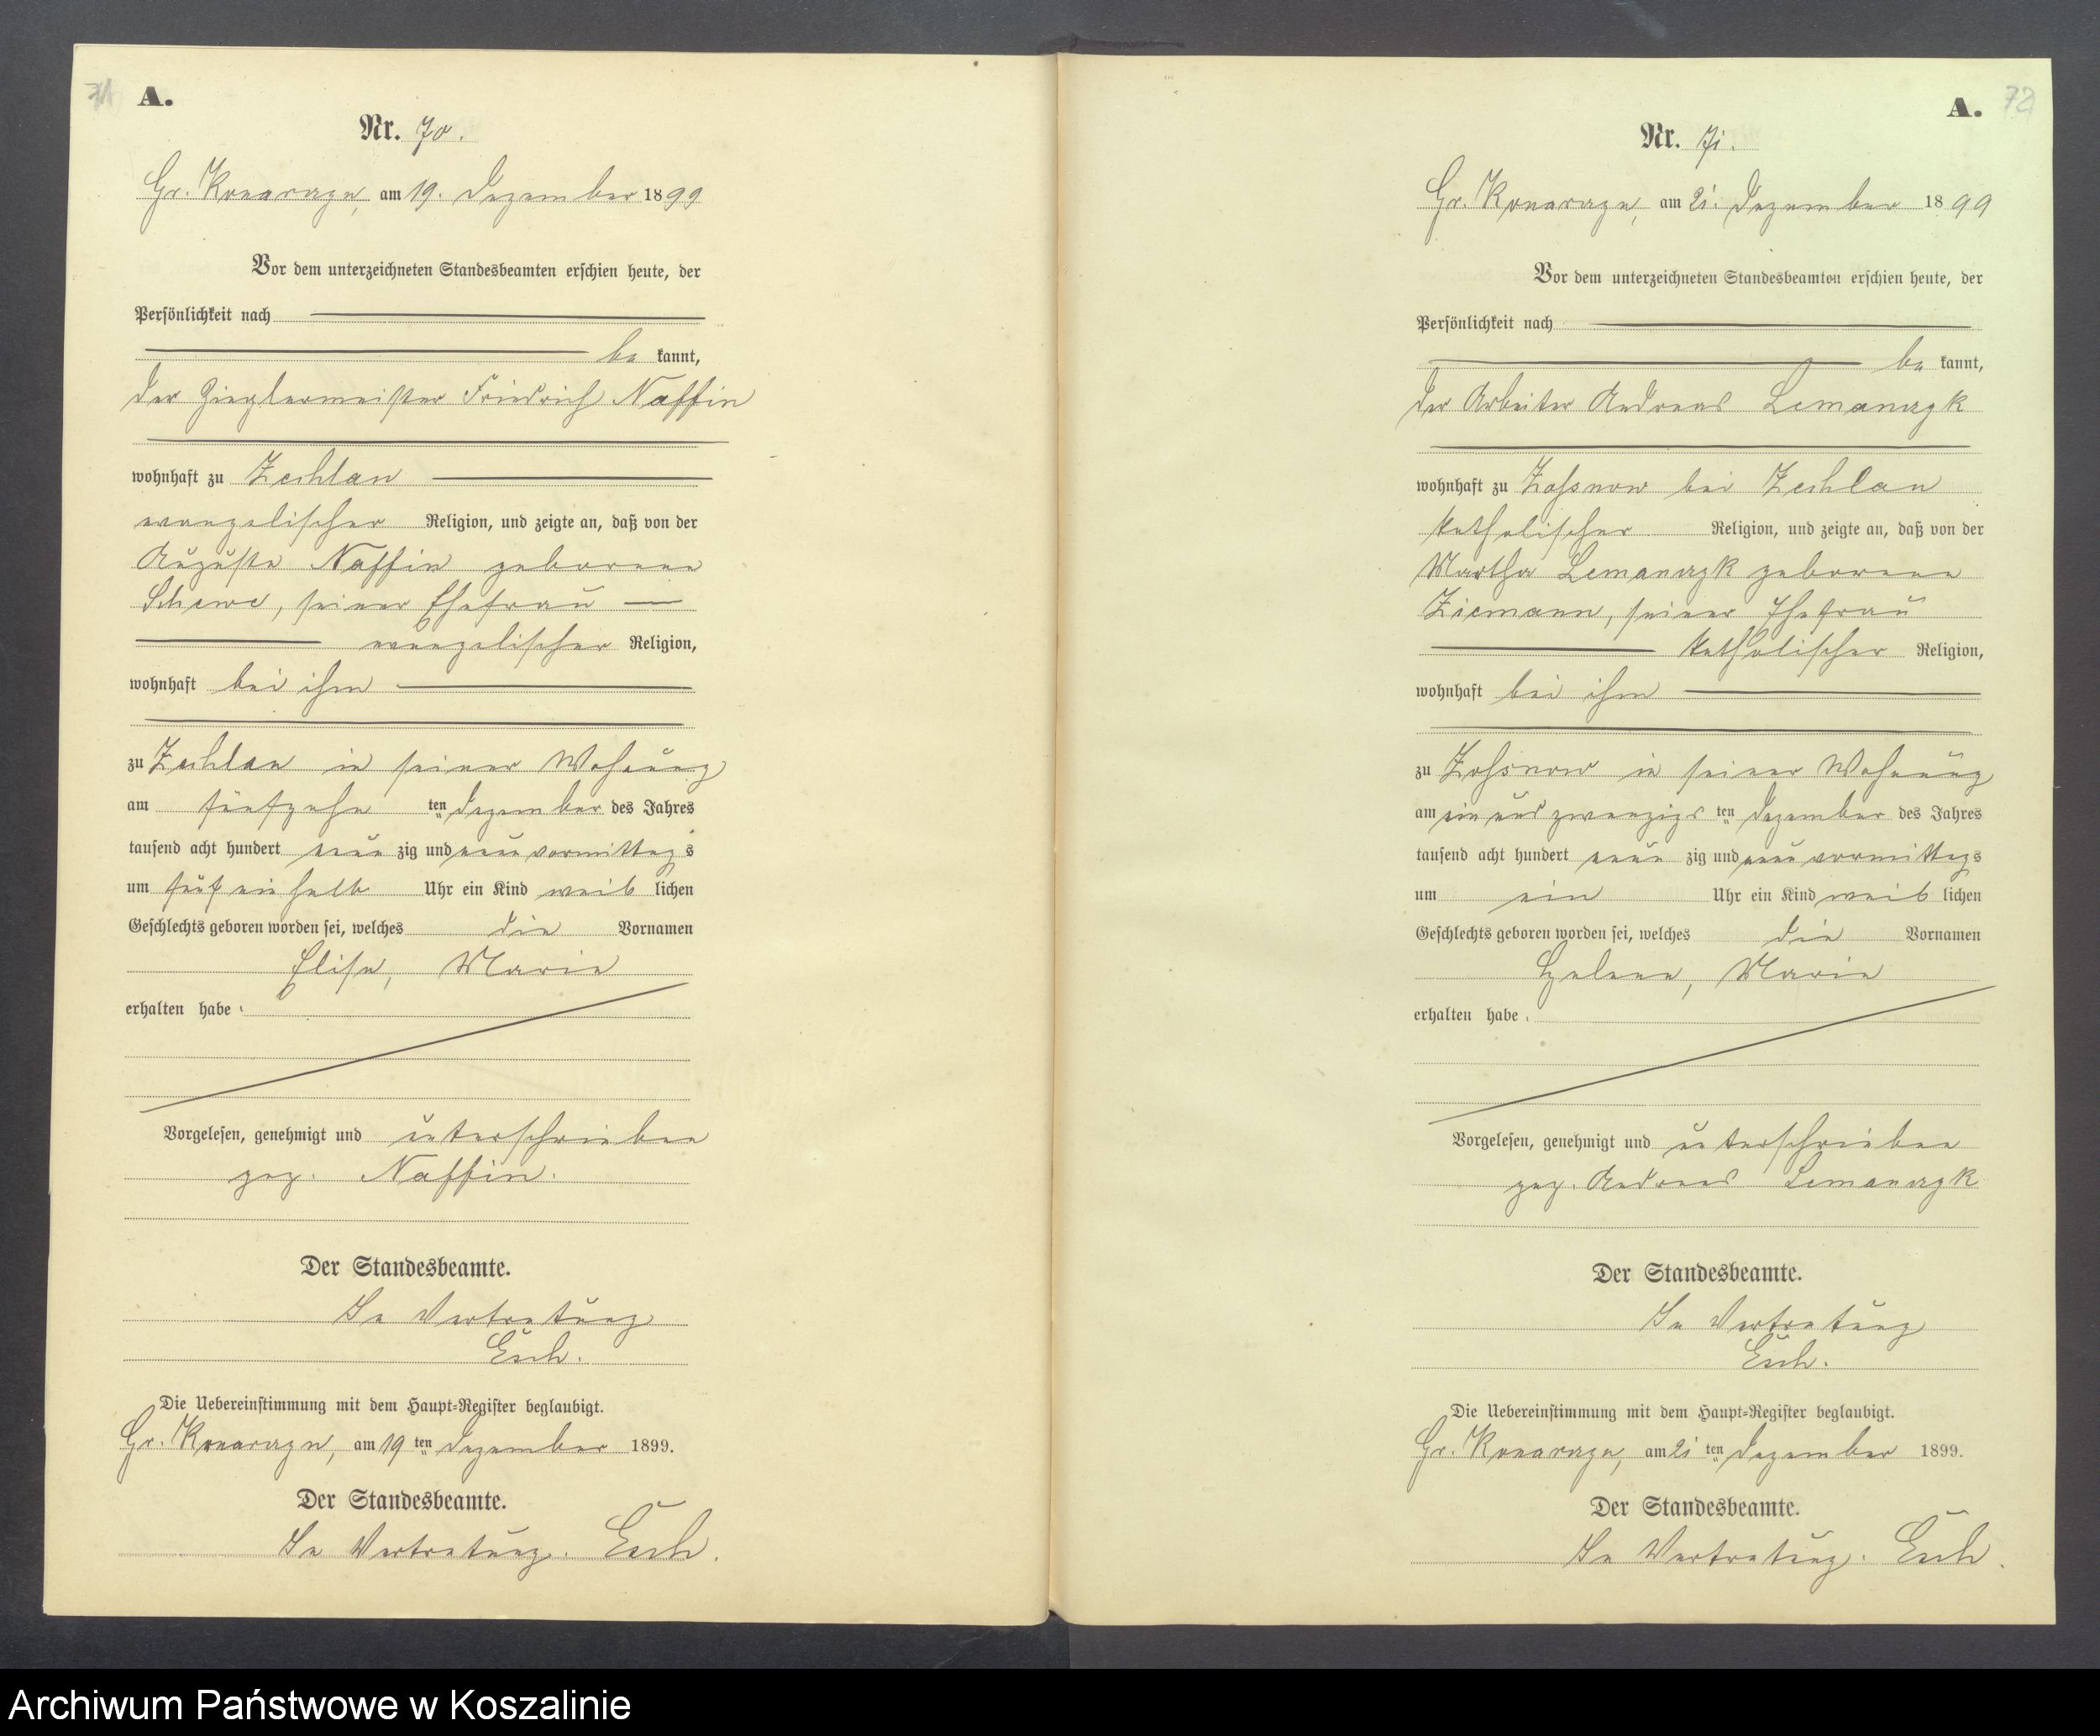 A.
Nr. 70.
Gr. Konarczyn, am 19. Dezember 1899
Vor dem unterzeichneten Standesbeamten erschien heute, der
Persönlichkeit nach
be kannt,
der Zieglermeister Friedrich Naffin
wohnhaft zu Zechlau
evangelischer Religion, und zeigte an, daß von der
Auguste Naffin geborene
Schewe, seiner Ehefrau
evangelischer Religion,
wohnhaft bei ihm
zu Zechlau in seiner Wohnung
am fünfzehn ten Dezember des Jahres
tausend acht hundert neun zig und neun vormittags
um fünf ein halb Uhr ein Kind weib lichen
Geschlechts geboren worden sei, welches die Vornamen
Elise, Marie
erhalten habe.
Vorgelesen, genehmigt und unterschrieben
gez. Naffin.
Der Standesbeamte.
In Vertretung
Esch.
Die Uebereinstimmung mit dem Haupt-Register beglaubigt.
Gr. Konarczyn, am 19 ten Dezember 1899.
Der Standesbeamte.
In Vertretung. Esch.
A. 72
Nr. 71.
Gr. Konarczyn, am 21. Dezember 1899
Vor dem unterzeichneten Standesbeamten erschien heute, der
Persönlichkeit nach
be kannt,
der Arbeiter Andreas Lemanczyk
wohnhaft zu Zossnow bei Zechlau
katholischer Religion, und zeigte an, daß von der
Martha Lemanczyk geborene
Ziemann, seiner Ehefrau
katholischer Religion,
wohnhaft bei ihm
zu Zossnow in seiner Wohnung
am ein und zwanzigs ten Dezember des Jahres
tausend acht hundert neun zig und neun vormittags
um ein Uhr ein Kind weib lichen
Geschlechts geboren worden sei, welches die Vornamen
Helene, Marie
erhalten habe.
Vorgelesen, genehmigt und unterschrieben
gez. Andreas Lemanczyk
Der Standesbeamte.
In Vertretung
Esch.
Die Uebereinstimmung mit dem Haupt-Register beglaubigt.
Gr. Konarczyn, am 21 ten Dezember 1899.
Der Standesbeamte.
In Vertretung. Esch.
Archiwum Państwowe w Koszalinie